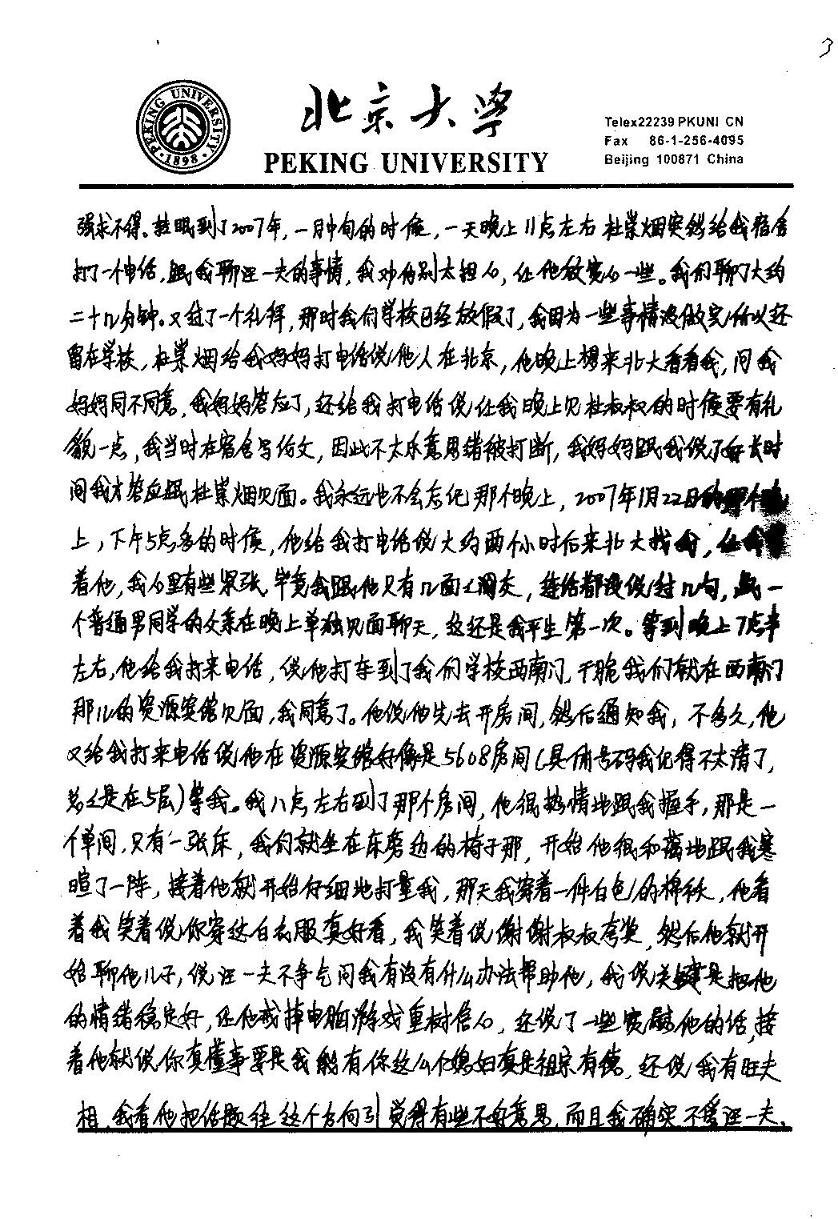 3
PEKING UNIVERSITY
1898
北京大学
PEKING UNIVERSITY
Telex22239 PKUNI CN
Fax 86-1-256-4095
Beijing 100871 China
强求不得。转眼到了2007年，一月中旬的时候，一天晚上11点左右杜崇烟突然给我宿舍
打了个电话，跟我聊汪一夫的事情，我劝他别太担心，让他放宽心一些。我们聊了大约
二十几分钟。又过了一个礼拜，那时我们学校已经放假了，我因为一些事情没做完所以还
留在学校，杜崇烟给我妈妈打电话说他人在北京，他晚上想来北大看看我，问我
妈妈同不同意，我妈妈答应了，还给我打电话说让我晚上见杜叔叔的时候要有礼
貌一点，我当时在宿舍写论文，因此不太乐意思绪被打断，我妈妈跟我说了好长时
间我才答应跟杜崇烟见面。我永远也不会忘记那个晚上，2007年1月22日的那个晚
上，下午5点多的时候，他给我打电话说大约两个小时后来北大找我，让我等
着他，我心里有些紧张，毕竟我跟他只有几面之洞交，连话都没说过几句，跟一
个普通男同学的父亲在晚上单独见面聊天，这还是我平生第一次。等到晚上7点半
左右，他给我打来电话，说他打车到了我们学校西南门，干脆我们就在西南门
那儿的资源宾馆见面，我同意了。他说他先去开房间，然后通知我，不多久，他
又给我打来电话说他在资源宾馆好像是5608房间（具体号码我记得不太清了，
总之是在5层）等我。我八点左右到了那个房间，他很热情地跟我握手，那是一
个单间，只有一张床，我们就坐在床旁边的椅子那，开始他很和蔼地跟我寒
暄了一阵，接着他就开始仔细地打量我，那天我穿着一件白色的棉袄，他看
着我笑着说你穿这白衣服真好看，我笑着说谢谢叔叔夸奖，然后他就开
始聊他儿子，说汪一夫不争气问我有没有什么办法帮助他，我说关键是把他
的情绪稳定好，让他戒掉电脑游戏重树信心，还说了一些安慰他的话，接
着他就说你真懂事要是我能有你这么个媳妇真是祖宗有德，还说我有旺夫
相，我看他把话题往这个方向引觉得有些不好意思，而且我确实不爱汪一夫，